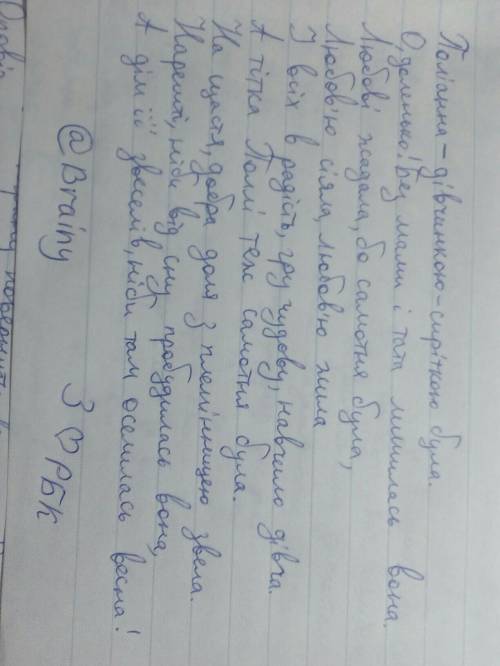 Поліанна - дівчинкою-сиріткою була.
О, доленько! Без мами і тата лишилась вона.
Любові жадала, бо самотня була,
Любов'ю сіяла, любов'ю жила
І всіх в радість, гру чудову, навчило дівча.
А тітка Поллі теж самотня була.
На щастя, добра доля з племінницею звела.
Нарешті, ніби від сну пробудилась вона,
А дім її звеселів, ніби там оселилась весна!
@Brainy З ♡ РБК